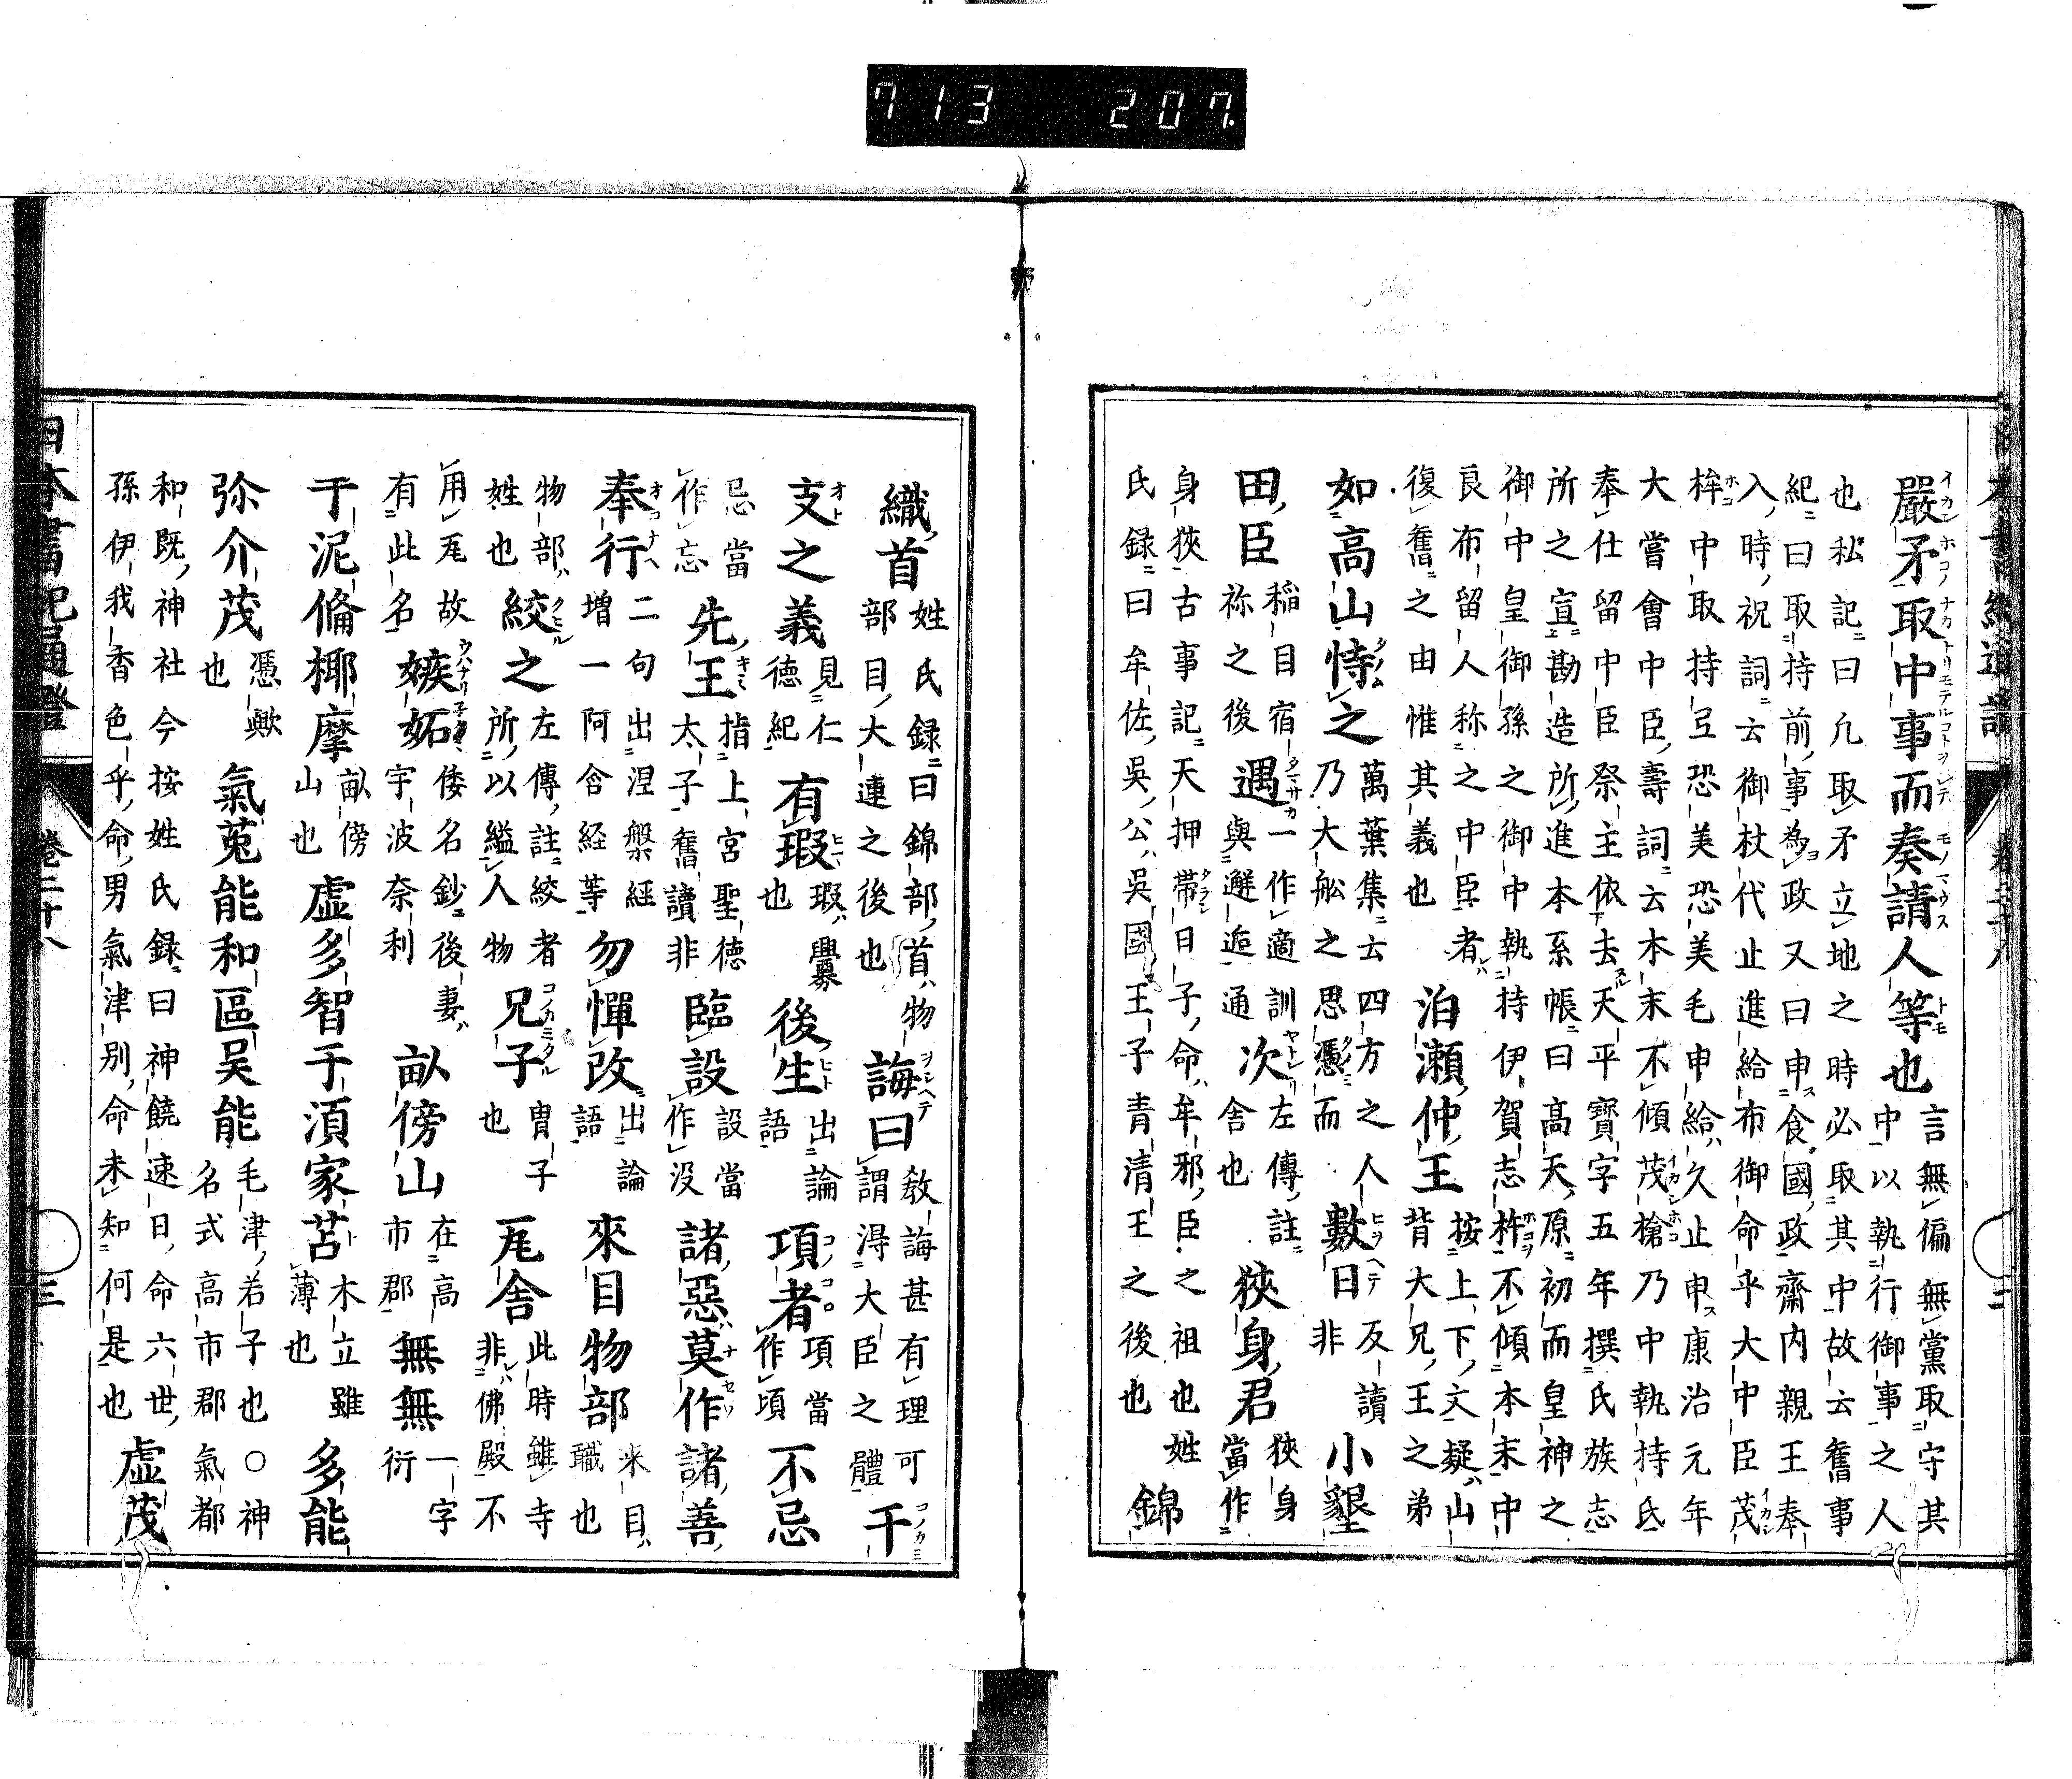 713 207.
嚴矛取中事而奏請人等也 言無偏無黨取守其
中以執行御事之人
也私記曰凢取矛立地之時必取其中故云奮事
紀曰取持前事為政又曰申食國政齋内親王奉
入時祝詞云御杖代止進給布御命乎大中臣茂
桙中取持弖恐美恐美毛申給久止申康治元年
大嘗會中臣壽詞云本末不傾茂槍乃中執持氐
奉仕留中臣祭主依去天平寳字五年撰氏族志
所之宣勘造所進本系帳曰高天原初而皇神之
御中皇御孫之御中執持伊賀志杵不傾本末中
良布留人称之中臣者 按上下文疑山
復奮之由惟其義也 泊瀬仲王 背大兄王之弟
如高山恃之 萬葉集云四方之人
乃大舩之思憑而 數日 反讀
非 小墾
田臣 稲目宿
祢之後 遇 一作適訓
與邂逅通 次 左傳註
舍也 狹身君 狹身
當作
身狹古事記天押帶日子命牟邪臣之祖也姓
氏録曰牟佐呉公呉國王子青清王之後也 錦
織首 姓氏録曰錦部首物
部目大連之後也 誨曰 敎誨甚有理可
謂得大臣之體 干
支之義 見仁
徳紀 有瑕 瑕釁
也 後生 出論
語 項者 項當
作頃 不忌
忌當
作忘 先王 指上宮聖徳
太子奮讀非 臨設 設當
作没 諸惡莫作諸善
奉行 二句出涅槃經
増一阿含経等 勿憚改 出論
語 來目物部 来目
職也
物部
姓也 絞之 左傳註絞者
所以縊人物 兄子 冑子
也 㡳舍 此時雖寺
非佛殿不
用㡳故
有此名 嫉妬 倭名鈔後妻
宇波奈利 畝傍山 在高
市郡 無無 一字
衍
于泥備椰摩 畝傍
山也 虚多智于湏家苫 木立雖
薄也 多能
弥介茂 憑歟
也 氣菟能和區呉能 毛津若子也○神
名式高市郡氣都
和既神社今按姓氏録曰神饒速日命六世
孫伊我香色乎命男氣津別命未知何是也 虚茂
日本書紀通證 卷二十八 三